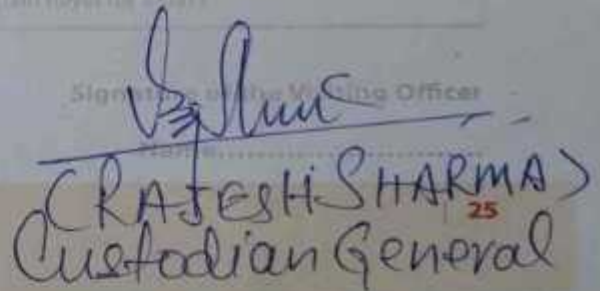 Signature of the Visiting Officer
Name....................
(RAJESH SHARMA)
25
Custodian General